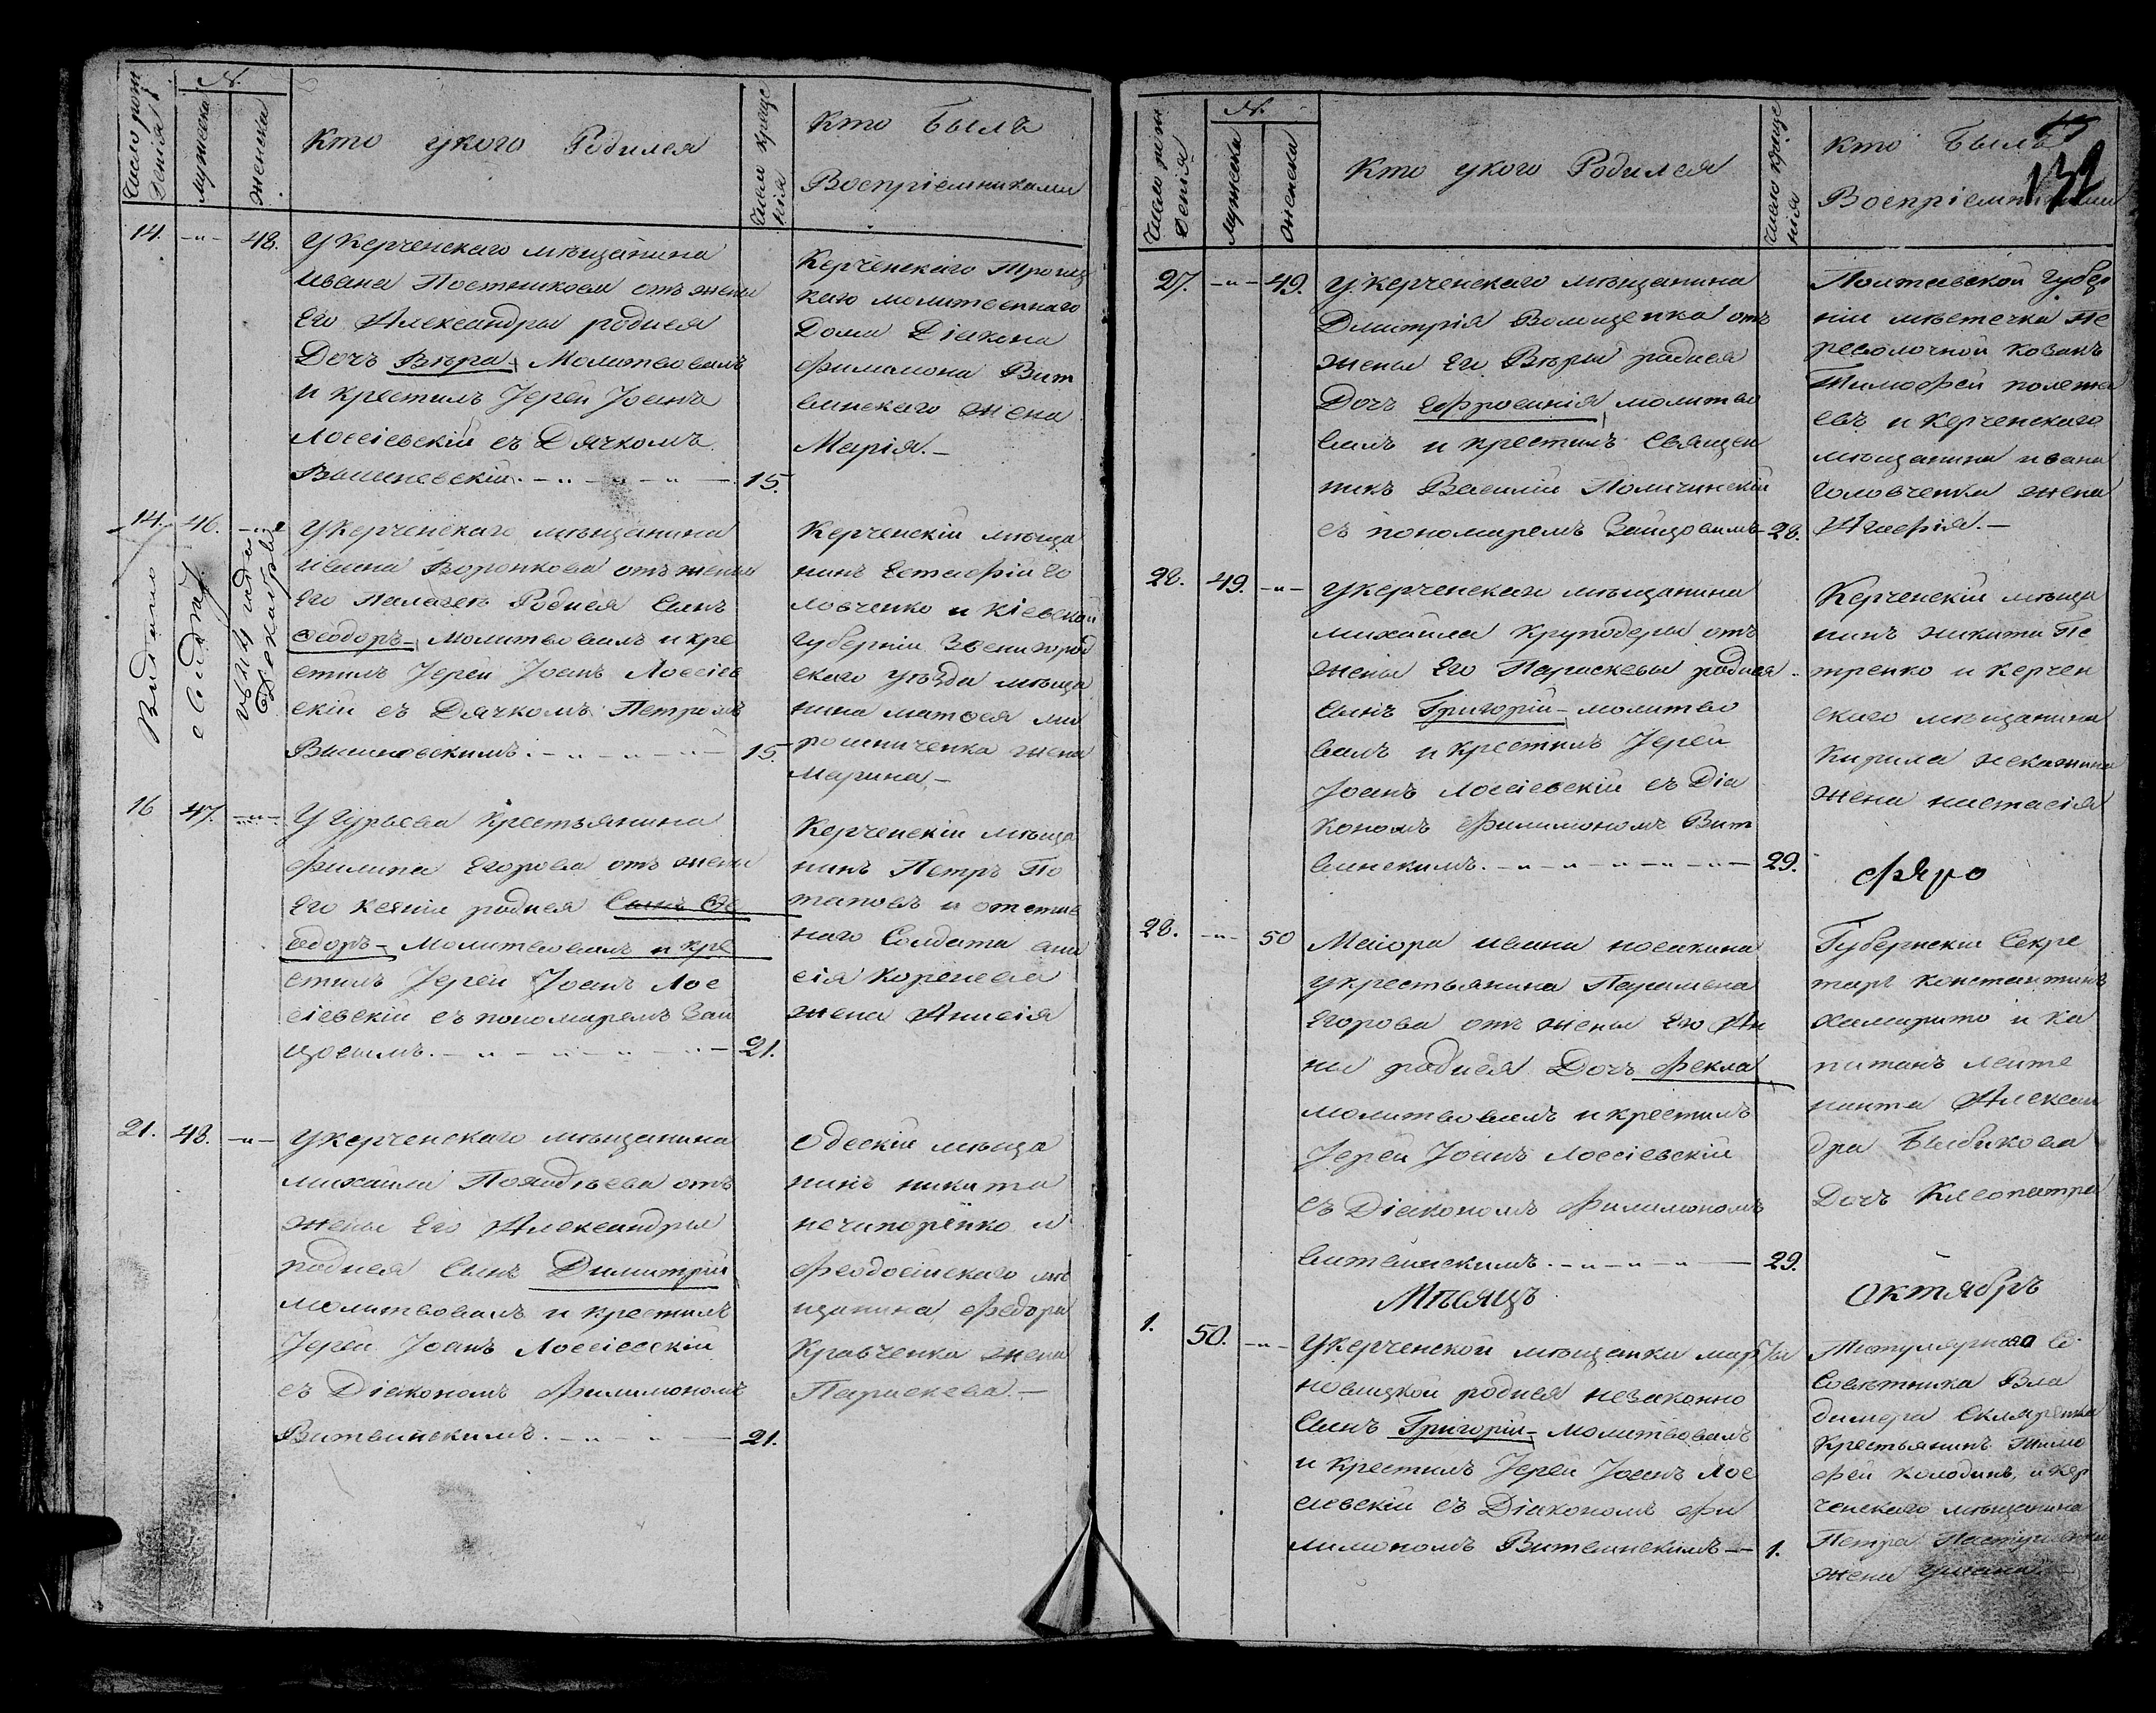 Число рож
денія
№.
мужеска
женска
Кто укого Родился
Число креще
нія
Кто Былъ
Воспріемниками
14.
-"-
48.
У Керченскаго мѣщанина
Ивана Постникова отъ жены
Его Александры родися
Дочъ Вѣра, Молитвовалъ
и крестилъ Іерей Іоанъ
Лоссіевскій съ Дячкомъ
15.
Керченскаго Троиц
каго молитвеннаго
Дома Діакона
Филимона Вит
винскаго жена
Марія.-
14.
46.
-"-
Видано
свид.
декабря
У Керченскаго мѣщанина
Ивана Воронкова отъ жены
Его Палагеѣ Родися Сынъ
Феодоръ- Молитвовалъ и кре
стилъ Іерей Іоанъ Лоссіев
скій съ Дячкомъ Петромъ
Вишневскимъ.
15.
Керченскій мѣща
нинъ Естафій Го
ловченко и Кіевской
Губерніи Звенигород
скаго уѣзда мѣща
нина матфея ми
рошниченка жена
Марина,-
16
47.
-"-
У Гурьева Крестьянина
Филипа Егорова отъ жены
Его Ксеніи родися Сынъ Фе
одоръ- Молитвовалъ и кре
стилъ Іерей Іоанъ Лос
сіевскій съ пономаремъ Зай
цовымъ.
21.
Керченскій мѣща
нинъ Петръ По
таповъ и отстав
наго Солдата
жена Анисія
21.
48.
-"-
У Керченскаго мѣщанина
михайла отъ
жены Его Александры
родися Сынъ Димитрій
молитвовалъ и крестилъ
Іерей Іоанъ Лоссіевскій
съ Діакономъ Филимономъ
Витвинскимъ.
21.
Одескій мѣща
нинъ никита
нечипоренко и
Феодосійскаго мѣ
щанина Федора
Кравченка жена
Параскева.-
Число рож
денія
№.
Мужеска
Женска
Кто укого Родился
Число креще
нія
Кто Былъ
Воспріемниками
132
27.
-"-
49.
У Керченскаго мѣщанина
Дмитрія Волощенка отъ
жены Его Вѣры родися
Дочъ Ефросинія, молитво
валъ и крестилъ Священ
никъ Василій
съ пономаремъ Зайцовымъ
28.
Полтавской Губер
ніи мѣстечка Пе
револочной козакъ
Тимофей
евъ и Керченскаго
мѣщанина ивана
Головченка жена
Агафія.-
28.
49.
-"-
У Керченскаго мѣщанина
михайла Круподеры отъ
жены Его Параскевы родися
Сынъ Григорій- молитво
валъ и крестилъ Іерей
Іоанъ Лоссіевскій съ Діа
кономъ Филимономъ Вит
винскимъ.
29.
Керченскій мѣща
нинъ никита Пе
тренко и Керчен
скаго мѣщанина
Кирила
жена настасія
28.
-"-
50
Маіора ивана носакина
у крестьянина Парамена
Егорова отъ жены Его Ан
ны родися Дочъ Фекла
молитвовалъ и крестилъ
Іерей Іоанъ Лоссіевскій
съ Діакономъ Филимономъ
витвинскимъ.
29.
Губернскій Секре
таръ константинъ
и ка
питанъ лейте
нанта Алексан
дра
Дочъ Клеопатра
Мѣсяцъ
Октябрь
1.
50.
-"-
У Керченской мѣщанки марфы
новицкой родися незаконно
Сынъ Григорій- Молитвовалъ
и крестилъ Іерей Іоанъ Лос
сіевскій съ Діакономъ Фи
лимономъ Витвинскимъ
1.
Титулярнаго Со
Совѣтника Вла
димера Скляренка
Крестьянинъ Тимо
фей Колодинъ, и Кер
ченскаго мѣщанина
Петра
жена Ульяна.-